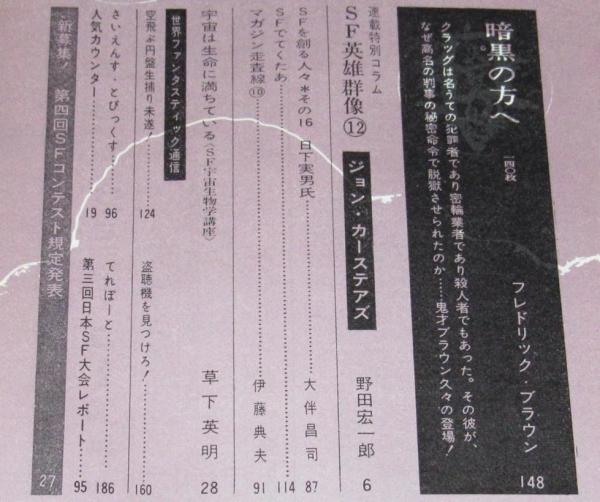 暗黒の方へ 一四〇枚 フレドリック・ブラウン 148
クラッグは名うての犯罪者であり密輪業者であり殺人者でもあった。その彼が、
なぜ高名の判事の秘密命令で脱獄させられたのか……鬼才ブラウン久々の登場!
連載特別コラム
SF英雄群像⑫ ジョン・カーステアズ 野田宏一郎 6
SFを創る人々*その16 日下実男氏 大伴昌司 87
SFでてくたあ 114
マガジン走査線⑩ 伊藤典夫 91
宇宙は生命に満ちている〈SF宇宙生物学講座〉 草下英明 28
世界ファンタスティック通信
空飛ぶ円盤生捕り未遂! 124 盗聴機を見つけろ! 160
さいえんす・とぴっくす 96 てれぽーと 186
人気カウンター 19 第三回日本SF大会レポート 95
新募集! 第四回SFコンテスト規定発表 27